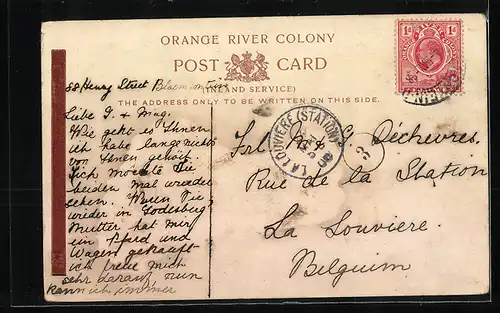 ORANGE RIVER COLONY
POST CARD
(INLAND SERVICE)
THE ADDRESS ONLY TO BE WRITTEN ON THIS SIDE.
58 Henry Street
Liebe G. & Mug.
Wie geht es Ihnen
ich habe lange nichts
von Ihnen gehört.
Ich möchte Sie
beiden mal wieder
sehen. Wenn Sie
wieder in Godesburg
Mutter hat mir
ein Pferd und
Wagen gekauft
ich freue mich
sehr darauf nun
kann ich immer
LA LOUVIERE (STATION)
Frl. Déchevres
Rue de la Station
La Louviere.
Belguim
1d 1d
ORANGE